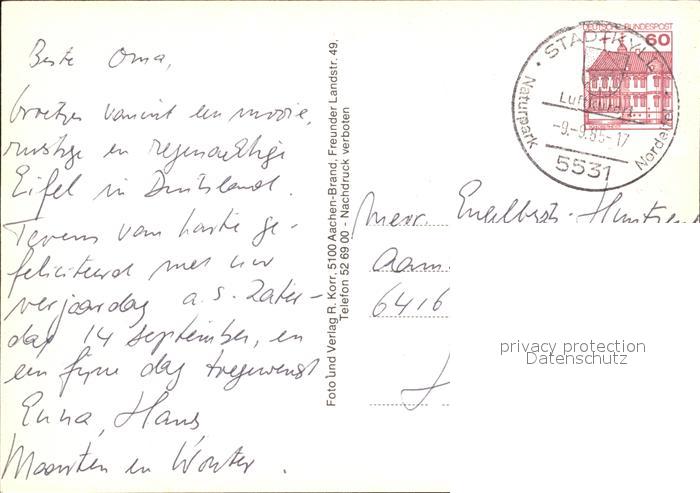 Beste Oma,
Groetjes vanuit een mooie,
rustige en regenachtige
Eifel in Duitsland.
Tevens van harte ge-
feliciteerd met uw
verjaardag a.s. Zater-
dag 14 september, en
een fijne dag toegewenst
Enna, Hans
Maarten en Wouter.
Foto und Verlag R. Korr, 5100 Aachen-Brand, Freunder Landstr. 49,
Telefon 52 69 00 - Nachdruck verboten
DEUTSCHE BUNDESPOST
60
STADTKYLL
Luftkurort
-9.-9.85-17
5531
Naturpark
Nordeifel
Mevr. Engelberts-
6416
privacy protection
Datenschutz